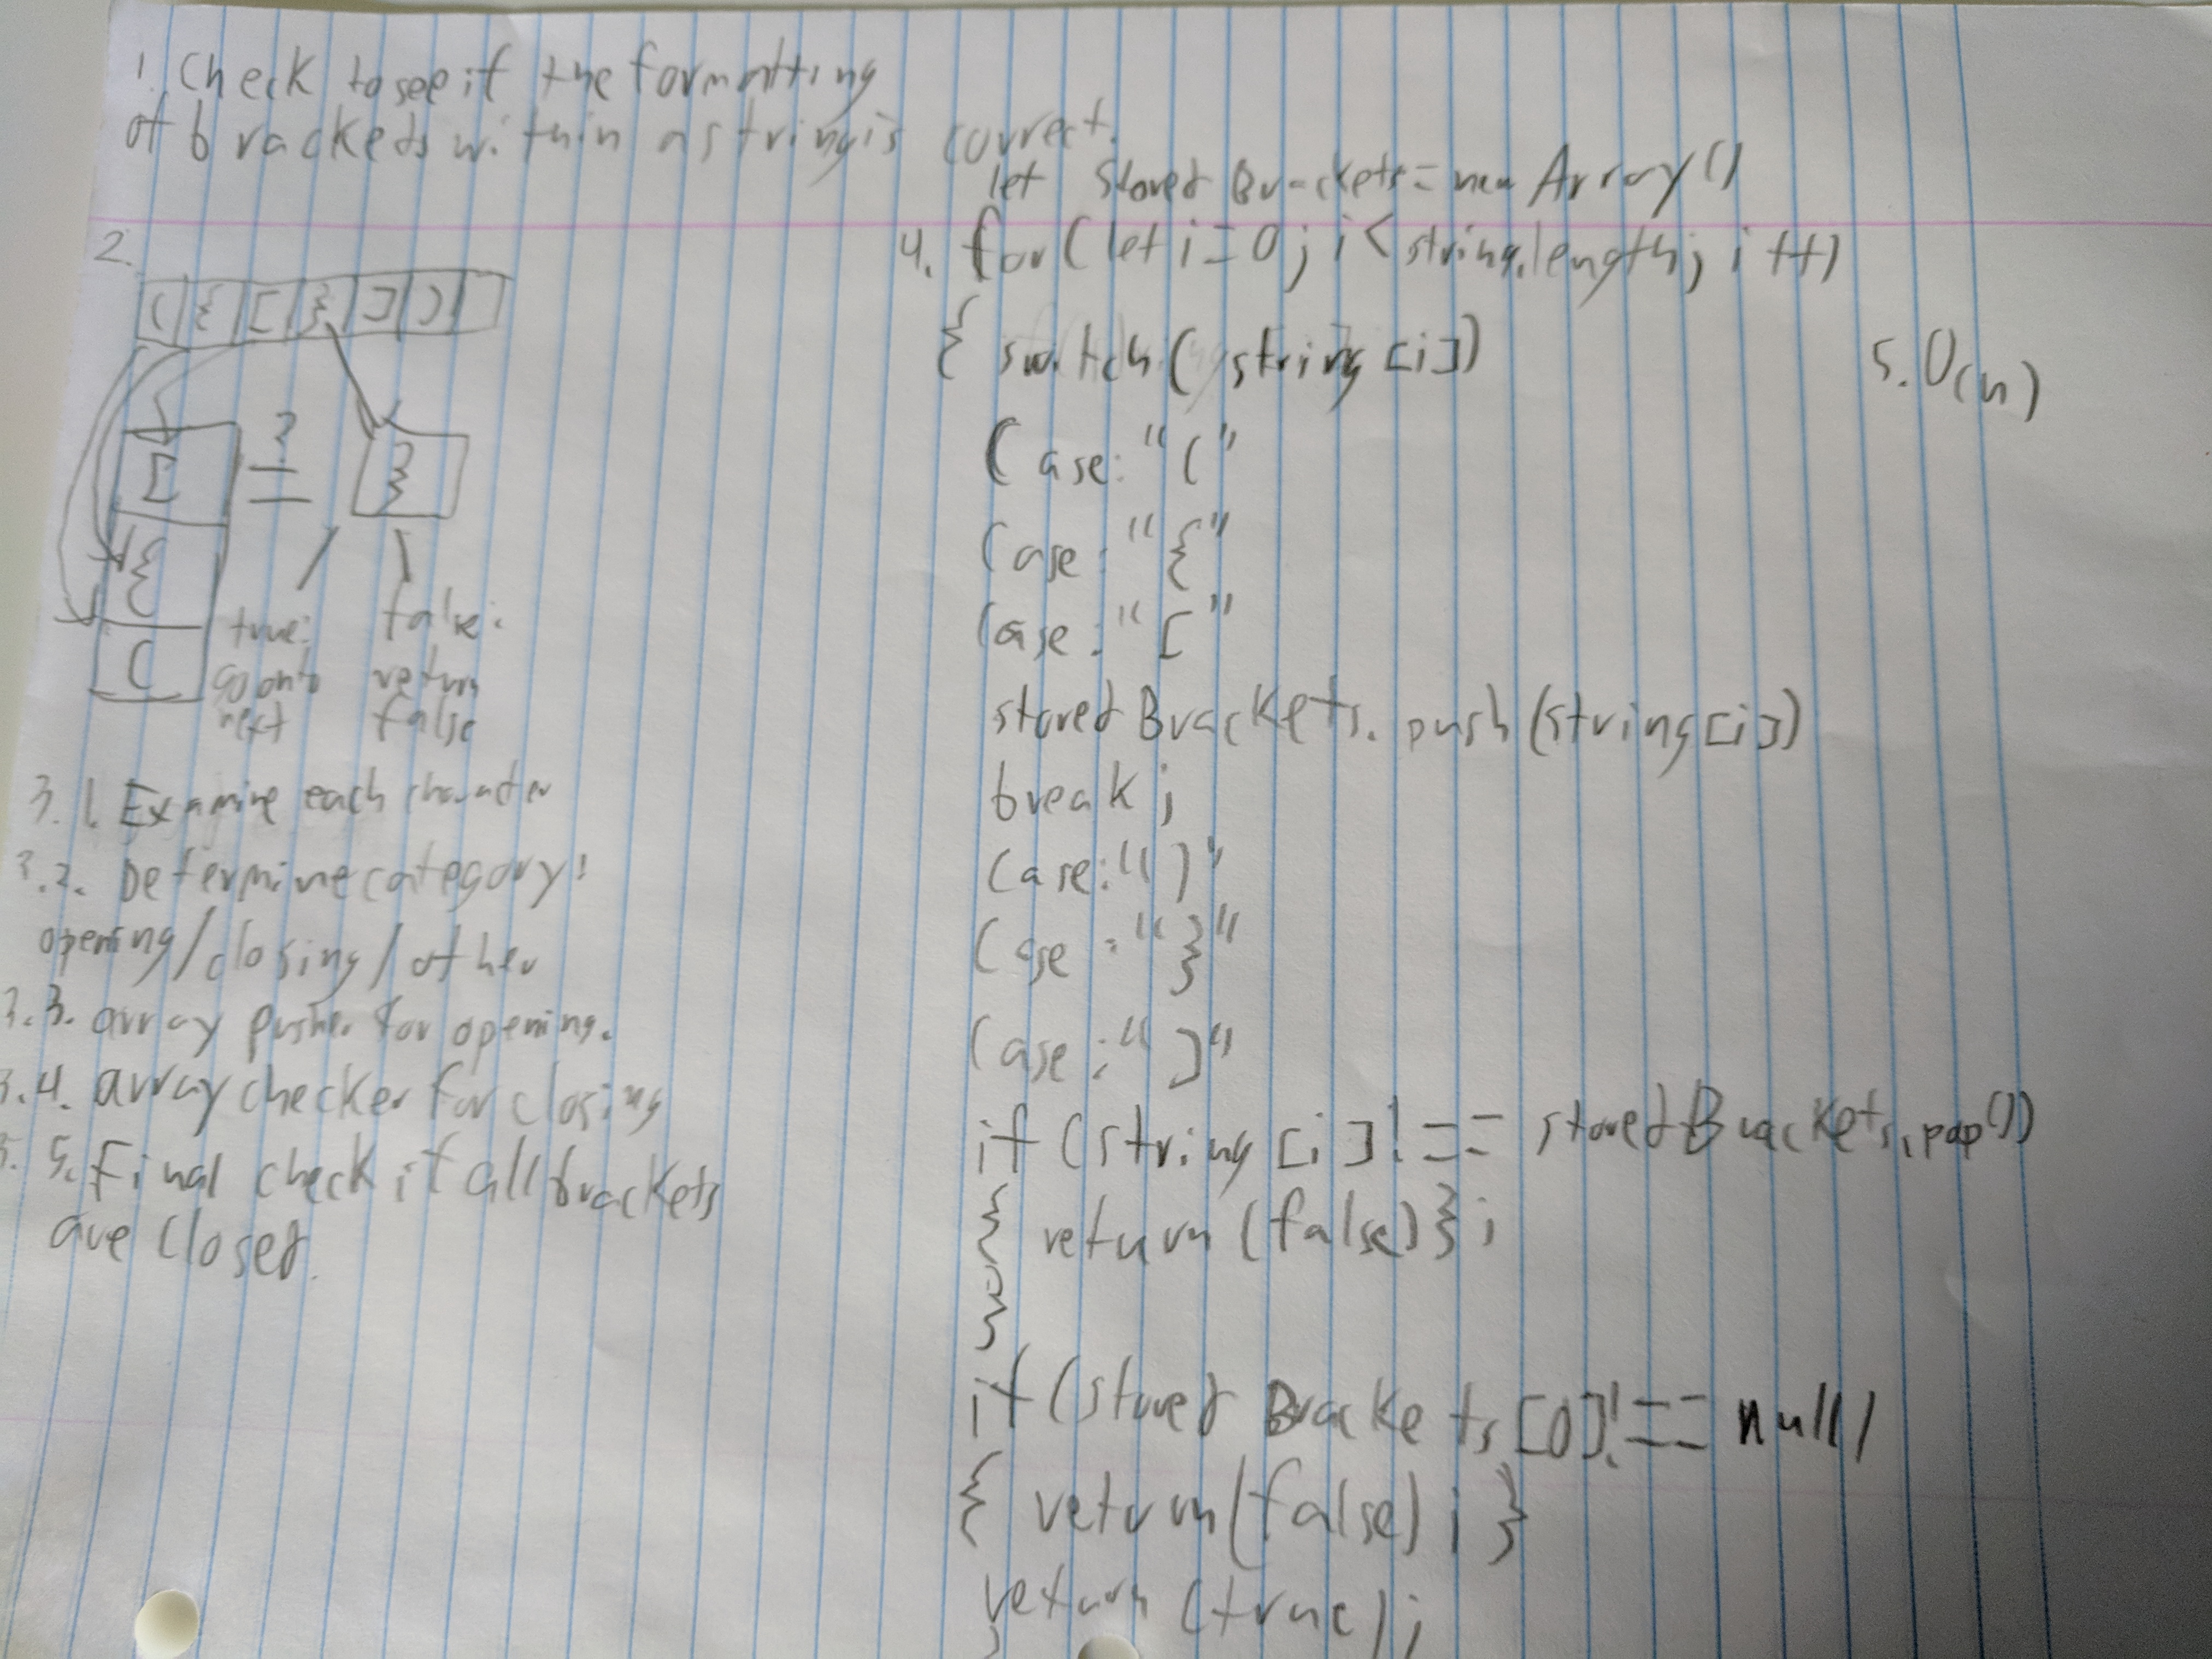 1. Check to see if the formatting
of brackets within a string is correct.
2.
( { [ } ] )
[ ? = }
{
(
true: false:
go onto return
next false
3.1. Examine each character
3.2. Determine category:
opening/closing/other
3.3. array pusher for opening.
3.4. array checker for closing
3.5. Final check if all brackets
are closed.
let storedBrackets = new Array()
4. for(let i=0; i<string.length; i++)
{ switch(string[i])
Case: "("
Case: "{"
Case: "["
storedBrackets.push(string[i])
break;
Case: ")"
Case: "}"
Case: "]"
if (string[i] !== storedBrackets.pop())
{ return (false)};
}
}
if (storedBrackets[0] !== null)
{ return(false); }
return (true);
5. O(n)